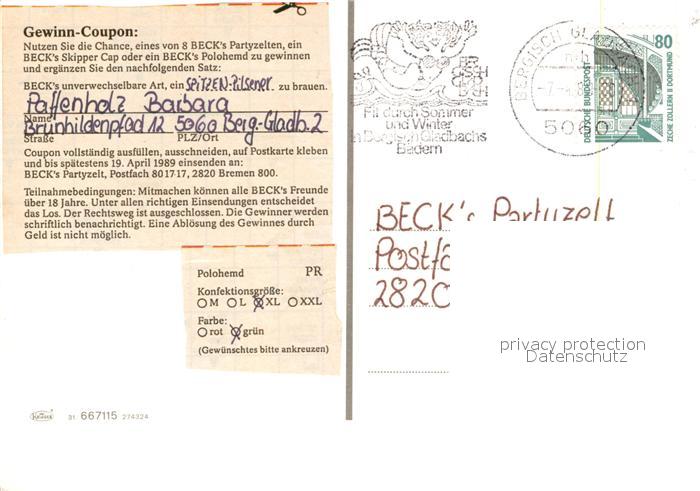 Gewinn-Coupon:
Nutzen Sie die Chance, eines von 8 BECK's Partyzelten, ein
BECK's Skipper Cap oder ein BECK's Polohemd zu gewinnen
und ergänzen Sie den nachfolgenden Satz:
BECK's unverwechselbare Art, ein SPITZEN-Pilsener zu brauen.
Paffenholz Barbara
Name
Brunhildenpfad 12 5060 Berg.-Gladb. 2
Straße PLZ/Ort
Coupon vollständig ausfüllen, ausschneiden, auf Postkarte kleben
und bis spätestens 19. April 1989 einsenden an:
BECK's Partyzelt, Postfach 801717, 2820 Bremen 800.
Teilnahmebedingungen: Mitmachen können alle BECK's Freunde
über 18 Jahre. Unter allen richtigen Einsendungen entscheidet
das Los. Der Rechtsweg ist ausgeschlossen. Die Gewinner werden
schriftlich benachrichtigt. Eine Ablösung des Gewinnes durch
Geld ist nicht möglich.
Polohemd PR
Konfektionsgröße:
M L XL XXL
Farbe:
rot grün
(Gewünschtes bitte ankreuzen)
KRÜGER
31 667115 274324
Fit durch Sommer
und Winter
in Bergisch Gladbachs
Bädern
BERGISCH GLAD
5060
80
DEUTSCHE BUNDESPOST
ZECHE ZOLLERN II DORTMUND
BECK's Partyzelt
Postfa
2820
privacy protection
Datenschutz